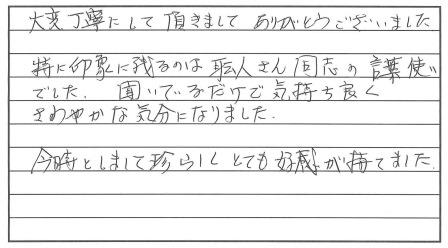 大変丁寧にして頂きまして ありがとうございました
特に印象に残るのは 職人さん同志の言葉使い
でした。 聞いているだけで気持ち良く
さわやかな気分になりました.
今時としまして珍らしく とても好感が持てました.